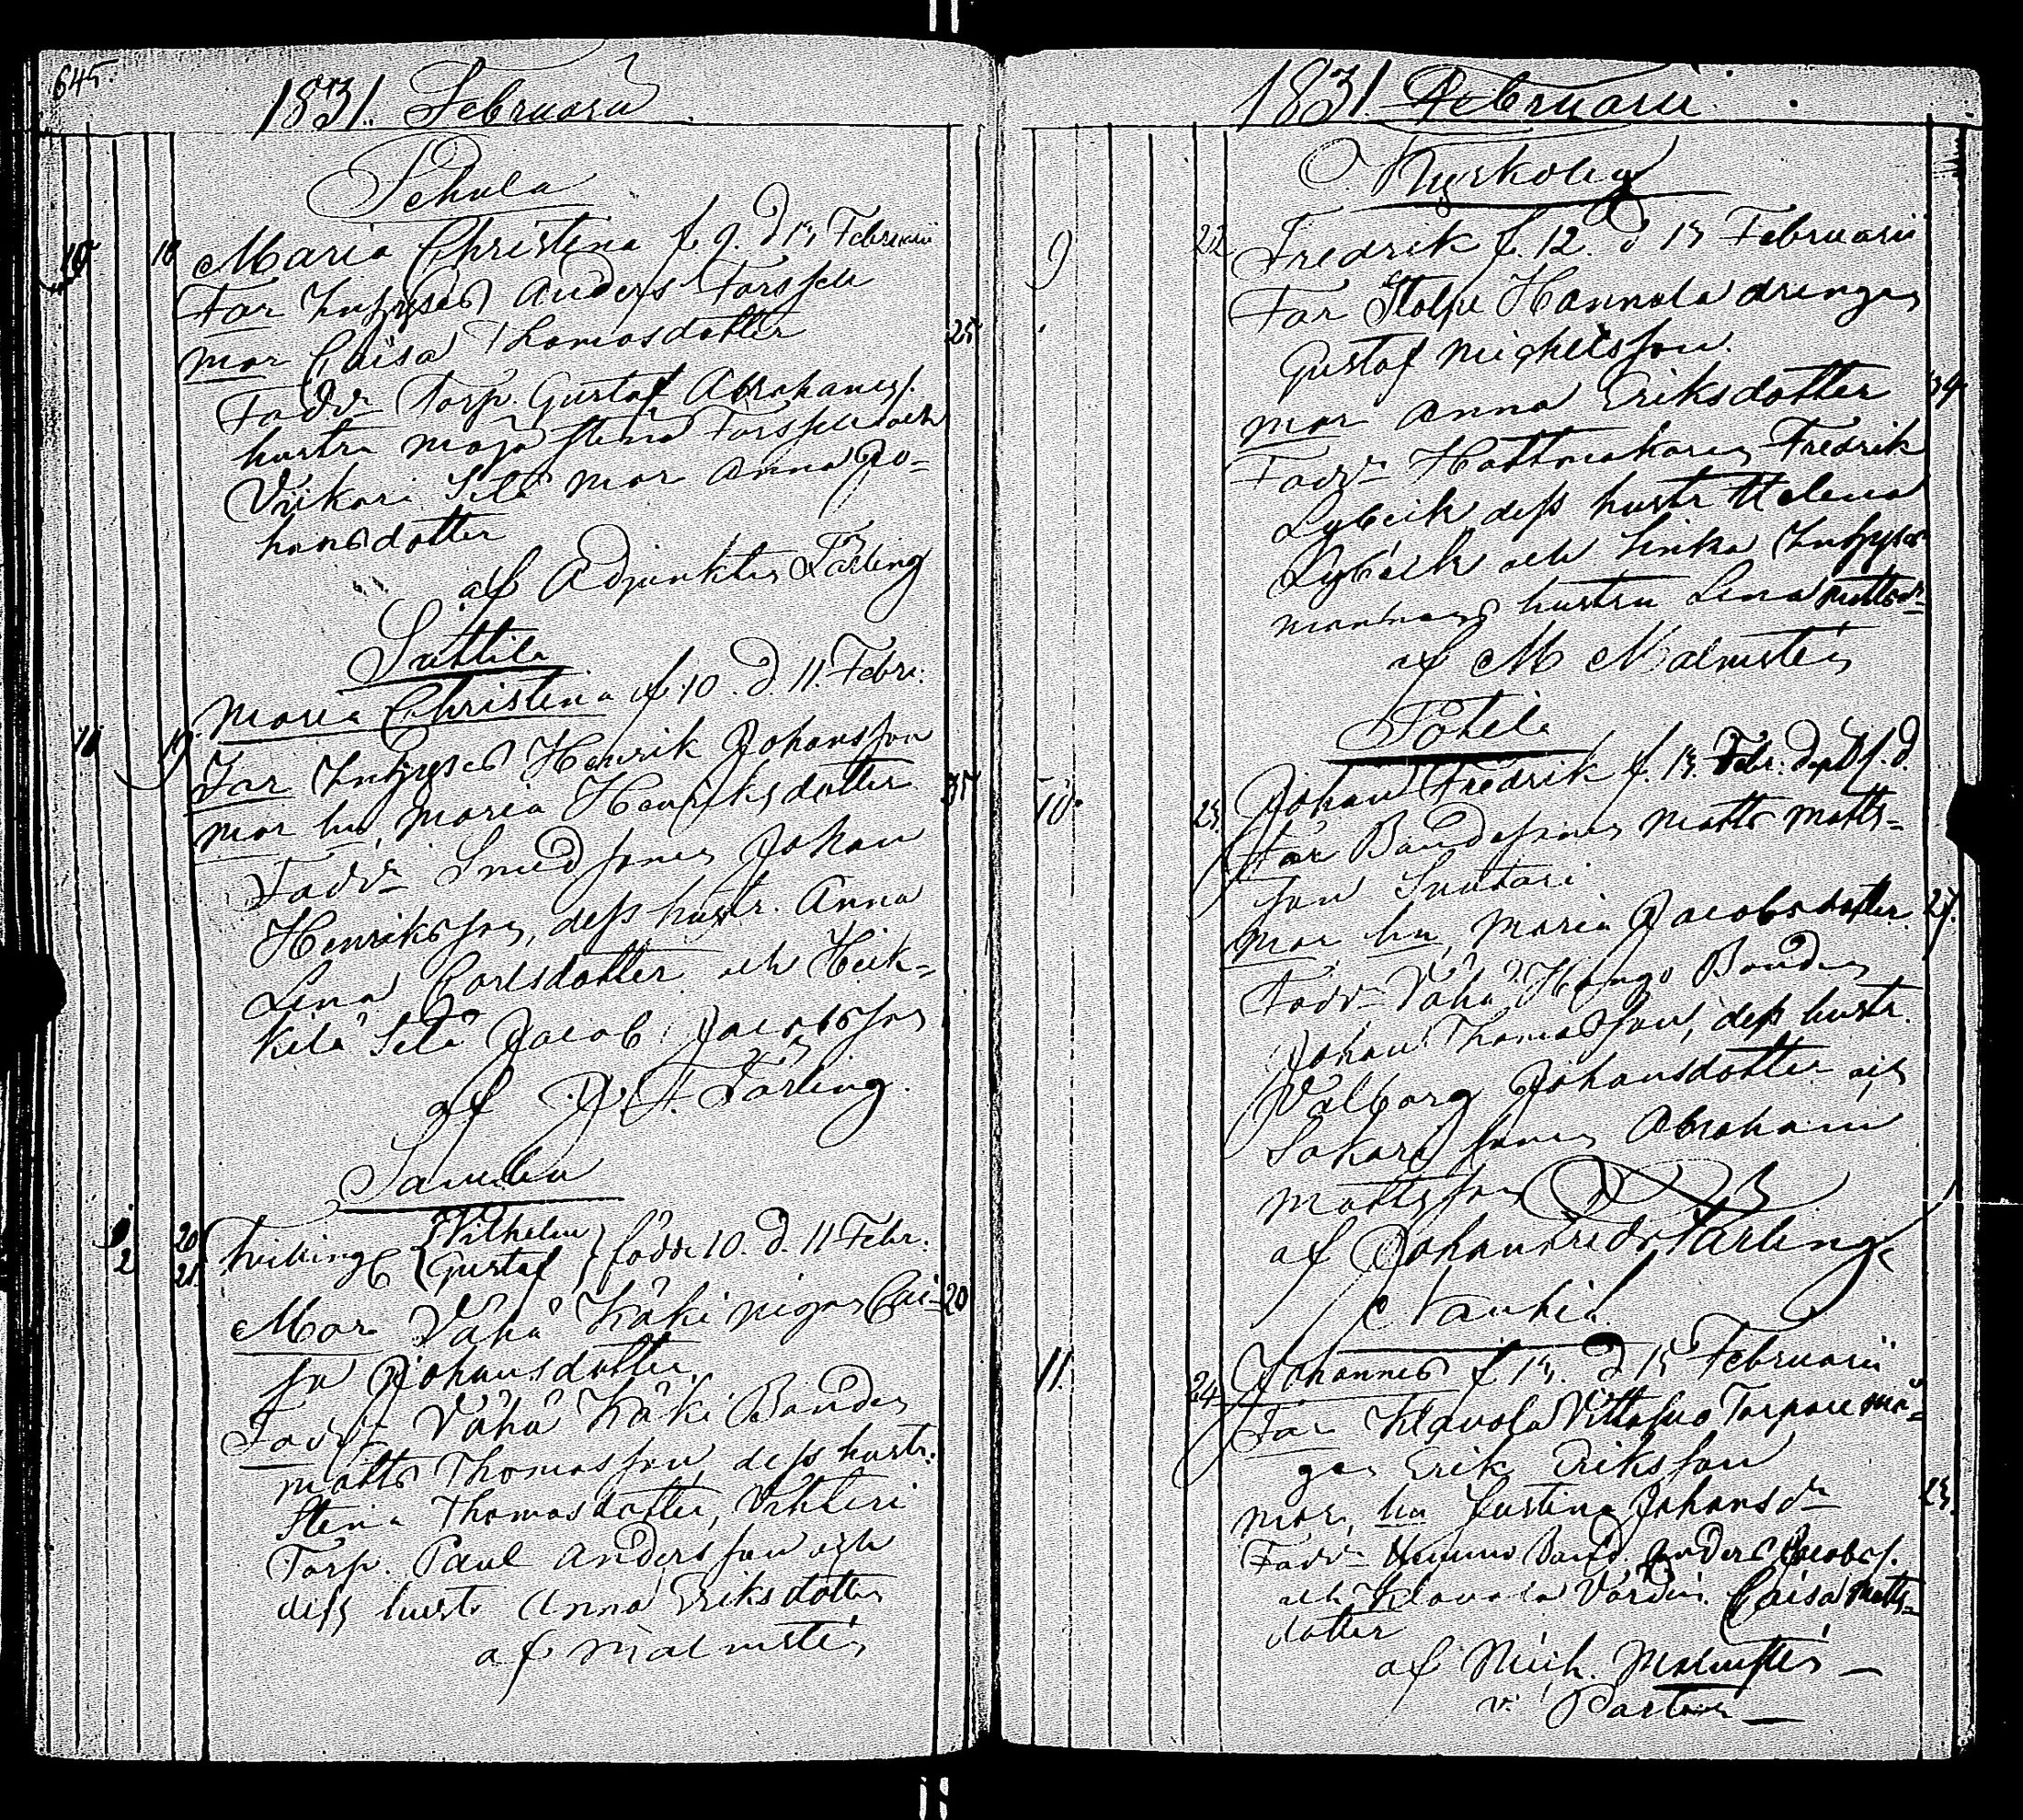 645.
1831. Februarii
Sehula
10 18 Maria Christina f. 9. d 13 Februarii
Far Inhyses Anders Forssell
mor Caisa Thomasdotter 25
Faddr Torp. Gustaf Abrahamss.
hustru Maja Stena Forssell och
Viikari Silä mor Anna Jo=
hansdotter
af Adjunkten Färling
Suttila
Maria Christina f. 10. d. 11. Febr.
19. Far Inhyses Henrik Johansson
mor hu, Maria Henriksdotter
Faddr Smedsonen Johan
Henriksson, dess hustr. Anna
Lena Carlsdotter och Heik=
kilä Silä Jacob Jacobsson
af J. F. Färling.
Samla
2 20 21 tvillingr Vilhelm Gustaf födde 10. d. 11 Febr.
Mor Vähä Käki pigan Cai= 20
sa Johansdotter
Faddr Vähä Käki Bonden
Matts Thomasson, dess hustr.
Stina Thomasdotter,
Torp. Paul Andersson och
dess hustr Anna Eriksdotter
af Malmstén
1831. Februarii
Kyrkoby
9 22 Fredrik f. 12. d 13 Februarii
Far Stolpe Hannula drengen
Gustaf Michelsson.
mor Anna Eriksdotter 34
Faddr Hattmakaren Fredrik
Lybeck dess hustr Helena
Lybeck och Sinka Inhyses
mannens hustru Lena Mattsdr
af M Malmstén
Potila
10. 23. Johan Fredrik f. 13. Febr. döpt s. d.
Far Bondesonen Matts Matts=
son Suutari
mor, hu, Maria Jacobsdotter 27.
Faddr Vähä Hongo Bonden
Johan Thomasson, dess hustr.
Valborg Johansdotter och
Sakari sonen Abraham
Mattsson
af Johan Fredr Färling.
Nauhi
11. 24 Johannes f 13. d 15 Februarii
Far Klavola Torpare må=
gen Erik Eriksson
mor, hu Justina Johansdr 23.
Faddr Bond. Anders Jacobss.
och Klavola Värdin. Caisa Matts=
dotter
af Mich. Malmstén
v. Pastor